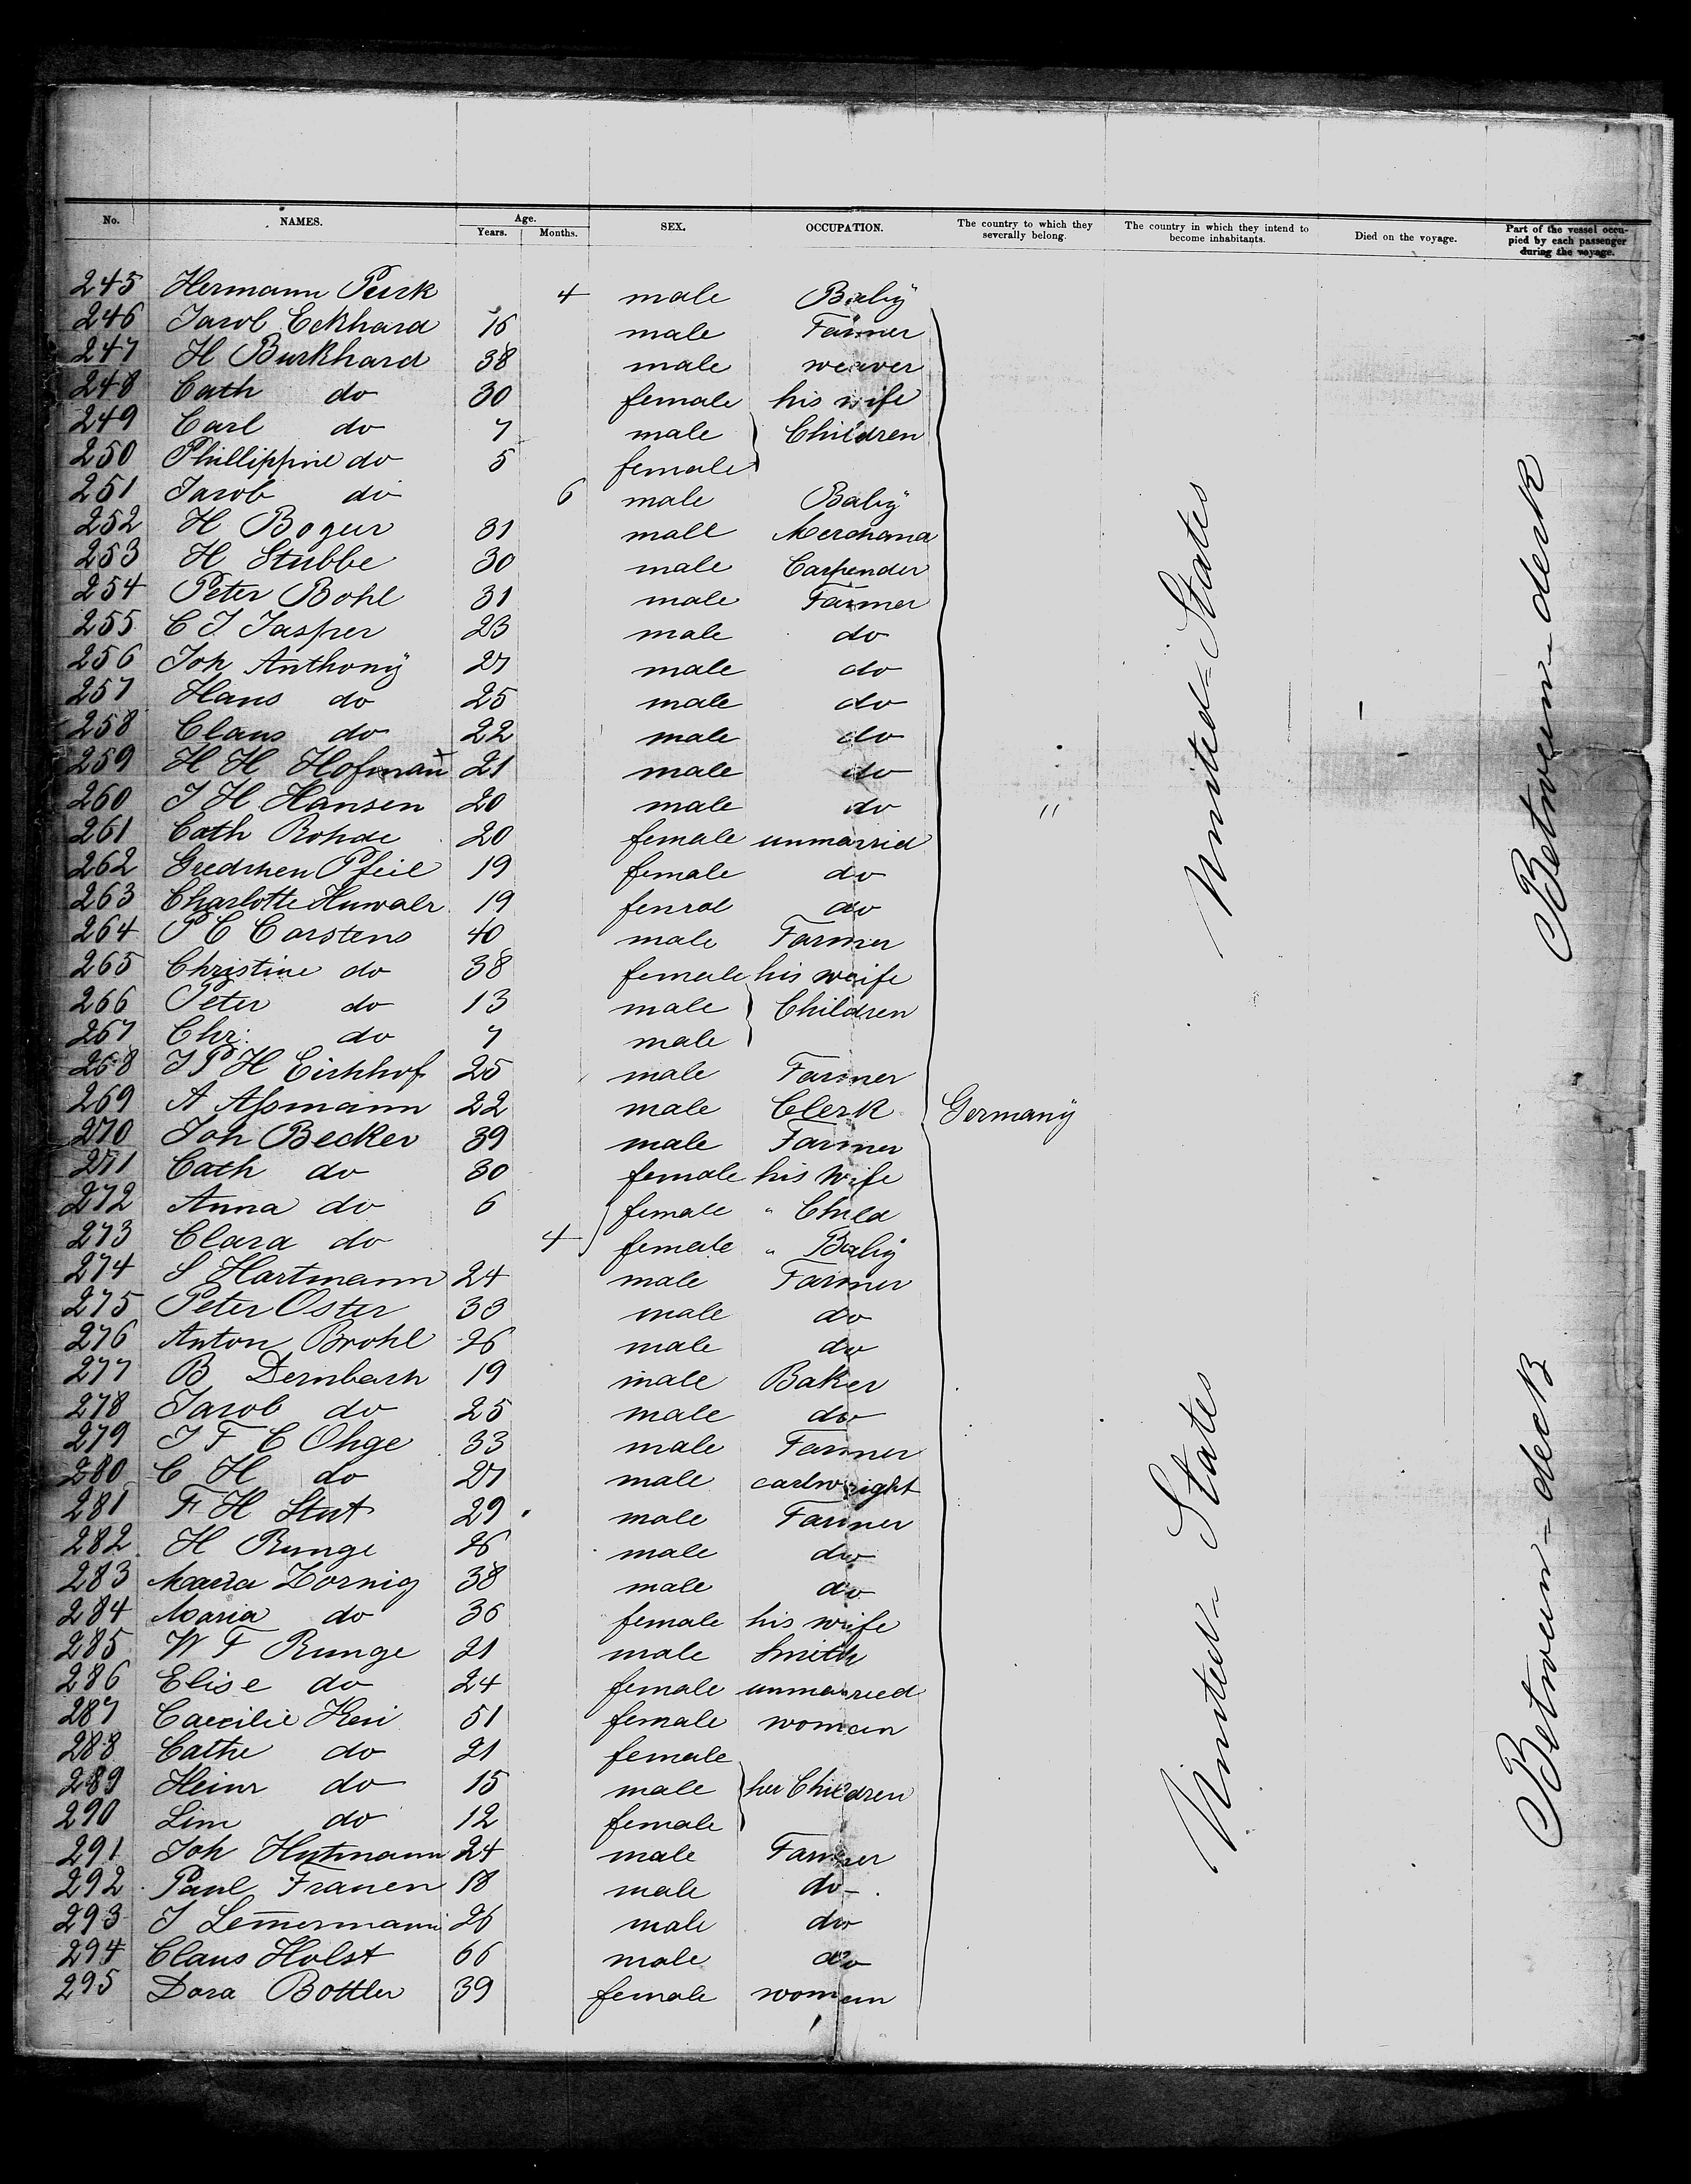 No. NAMES. Age. Years. Months. SEX. OCCUPATION. The country to which they severally belong. The country in which they intend to become inhabitants. Died on the voyage. Part of the vessel occupied by each passenger during the voyage.
245 Hermann 4 male Baby
246 Jacob Eckhard 16 male Farmer
247 H Burkhard 38 male weaver
248 Cath do 30 female his wife
249 Carl do 7 male Children
250 Phillippine do 5 female
251 Jacob do 6 male Baby
252 H 31 male Merchand
253 H Stubbe 30 male Carpender
254 Peter Bohl 31 male Farmer
255 C J Jasper 23 male do
256 Joh Anthony 27 male do
257 Hans do 25 male do
258 Claus do 22 male do
259 H H Hofmañ 21 male do
260 J H Hansen 20 male do "
261 Cath Rohde 20 female unmarried
262 Gredchen Pfeil 19 female do
263 Charlotte 19 do
264 P C Carstens 40 male Farmer
265 Christine do 38 female his weife
266 Peter do 13 male Children
267 Chr: do 7 male
268 J P H Eichhof 25 male Farmer
269 A Aßmann 22 male Clerk Germany
270 Joh Becker 39 male Farmer
271 Cath do 30 female his Wife
272 Anna do 6 female " Child
273 Clara do 4 female " Baby
274 S Hartmann 24 male Farmer
275 Peter Oster 33 male do
276 Anton Brohl 26 male do
277 B Dernbach 19 male Baker
278 Jacob do 25 male do
279 J F C Ohge 33 male Farmer
280 C H do 27 male cartwright
281 F H Stut 29 male Farmer
282 H Runge 26 male do
283 Maria Zornig 38 male do
284 Maria do 36 female his wife
285 W F Runge 21 male Smith
286 Elise do 24 female unmarried
287 Caecilie 51 female woman
288 Cathe do 21 female
289 Heinr do 15 male her Children
290 do 12 female
291 Joh 24 male Farmer
292 Paul Franen 18 male do
293 J Lem̄ermann 26 male do
294 Claus Holst 66 male do
295 Dora Bottler 39 female woman
United States
United States
Between deck
Between deck